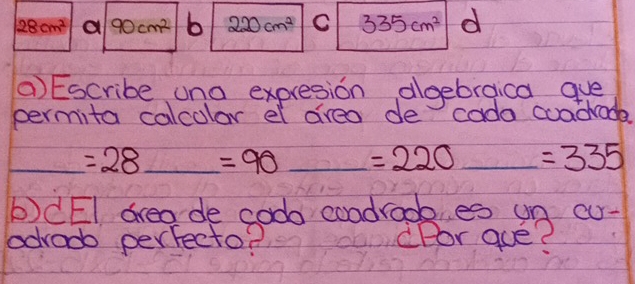 28cm² a 90cm² b 220cm² c 335cm² d
a) Escribe una expresión algebraica que
permita calcular el área de cada cuadrado.
____=28 ____=90 ____=220 ____=335
b) ¿El área de cada cuadrado es un cu-
adrado perfecto? ¿Por qué?